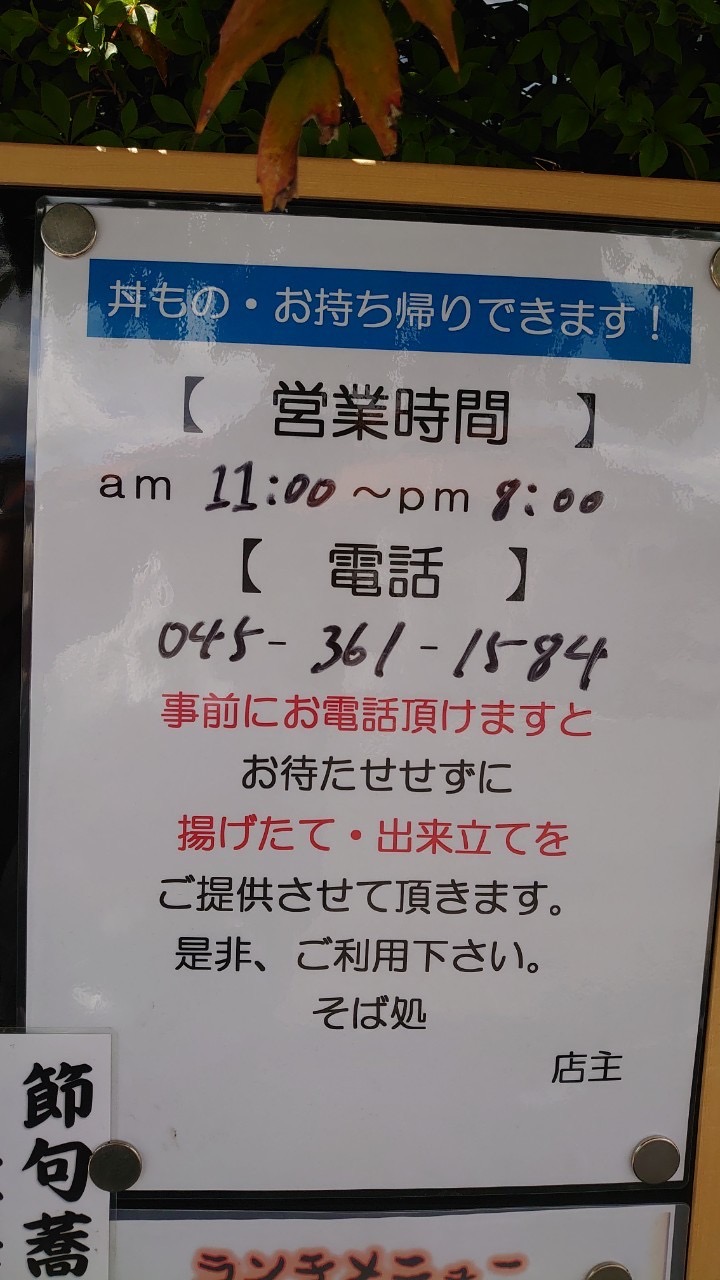 丼もの・お持ち帰りできます！
【　営業時間　】
am 11:00～pm 8:00
【　電話　】
045-361-1584
事前にお電話頂けますと
お待たせせずに
揚げたて・出来立てを
ご提供させて頂きます。
是非、ご利用下さい。
そば処
店主
節句蕎
ランチメニュー